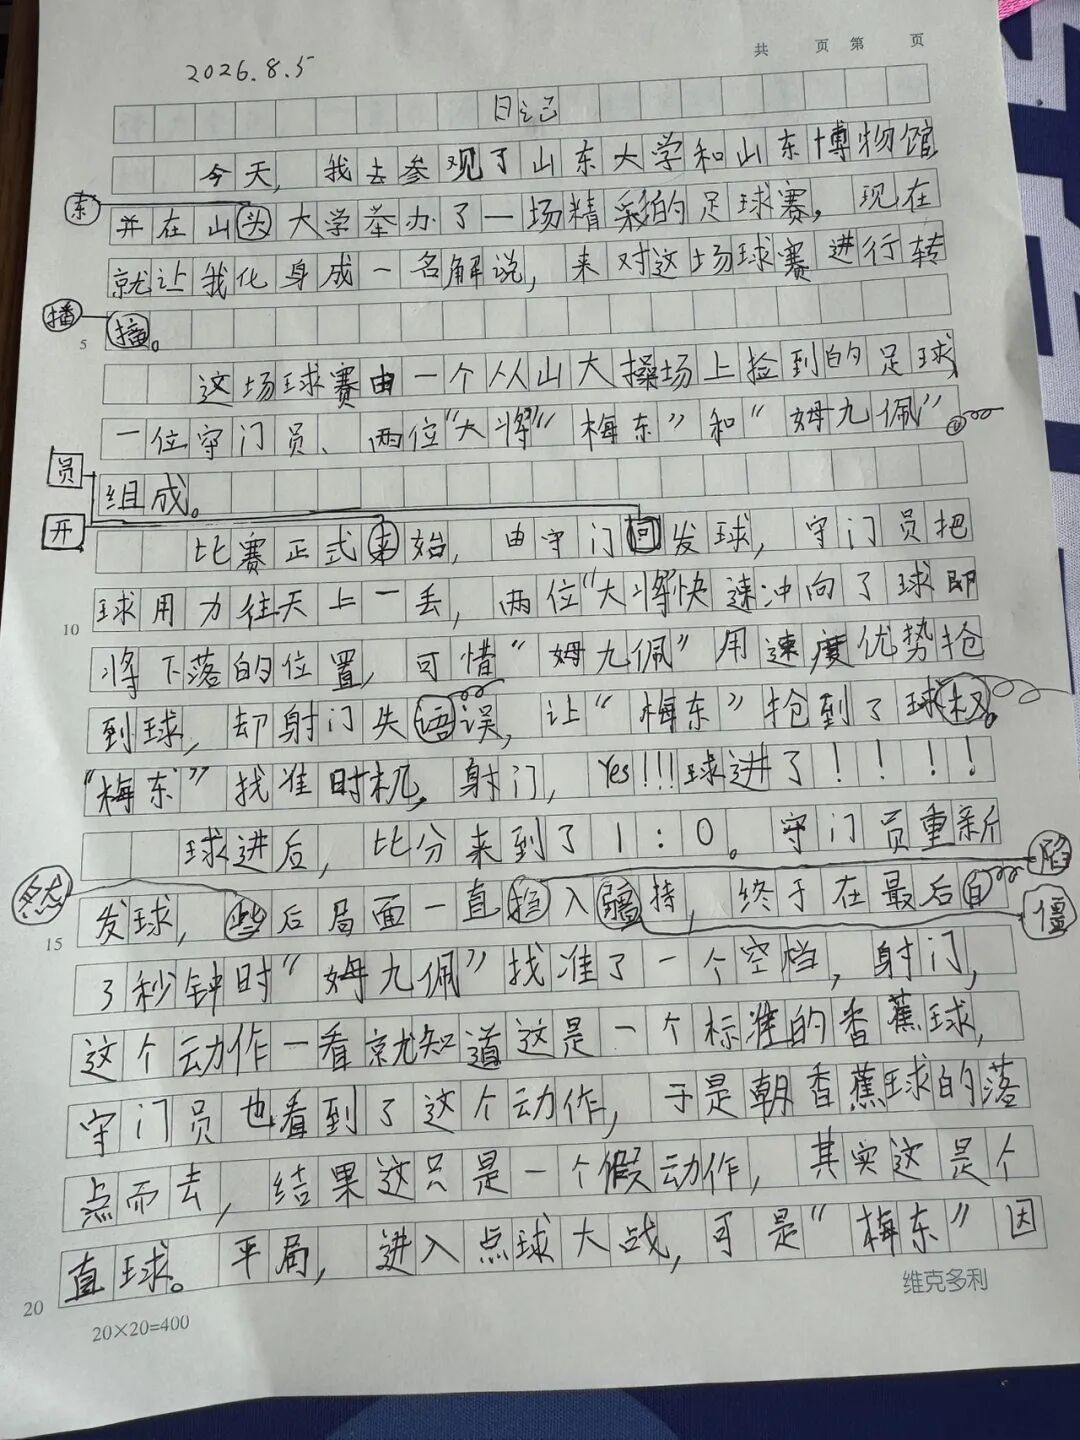 共 页 第 页
2026.8.5
日记
今天，我去参观了山东大学和山东博物馆
东
并在山头大学举办了一场精彩的足球赛，现在
就让我化身成一名解说，来对这场球赛进行转
播
5
。
这场球赛由一个从山大操场上捡到的足球
一位守门员、两位“大将“梅东”和“姆九佩”
员
组成。
开
比赛正式来始，由守门发球，守门员把
10
球用力往天上一丢，两位“大将快速冲向了球即
将下落的位置，可惜“姆九佩”用速度优势抢
到球，却射门失语误，让“梅东”抢到了球权。
“梅东”找准时机，射门，Yes!!!球进了！！！！
球进后，比分来到了1:0。守门员重新
陷
然
15
发球，些后局面一直入疆持，终于在最后自
僵
了秒钟时“姆九佩”找准了一个空档，射门，
这个动作一看就知道这是一个标准的香蕉球，
守门员也看到了这个动作，于是朝香蕉球的落
点而去，结果这只是一个假动作，其实这是个
直球。平局，进入点球大战，可是“梅东”因
20
20×20=400
维克多利